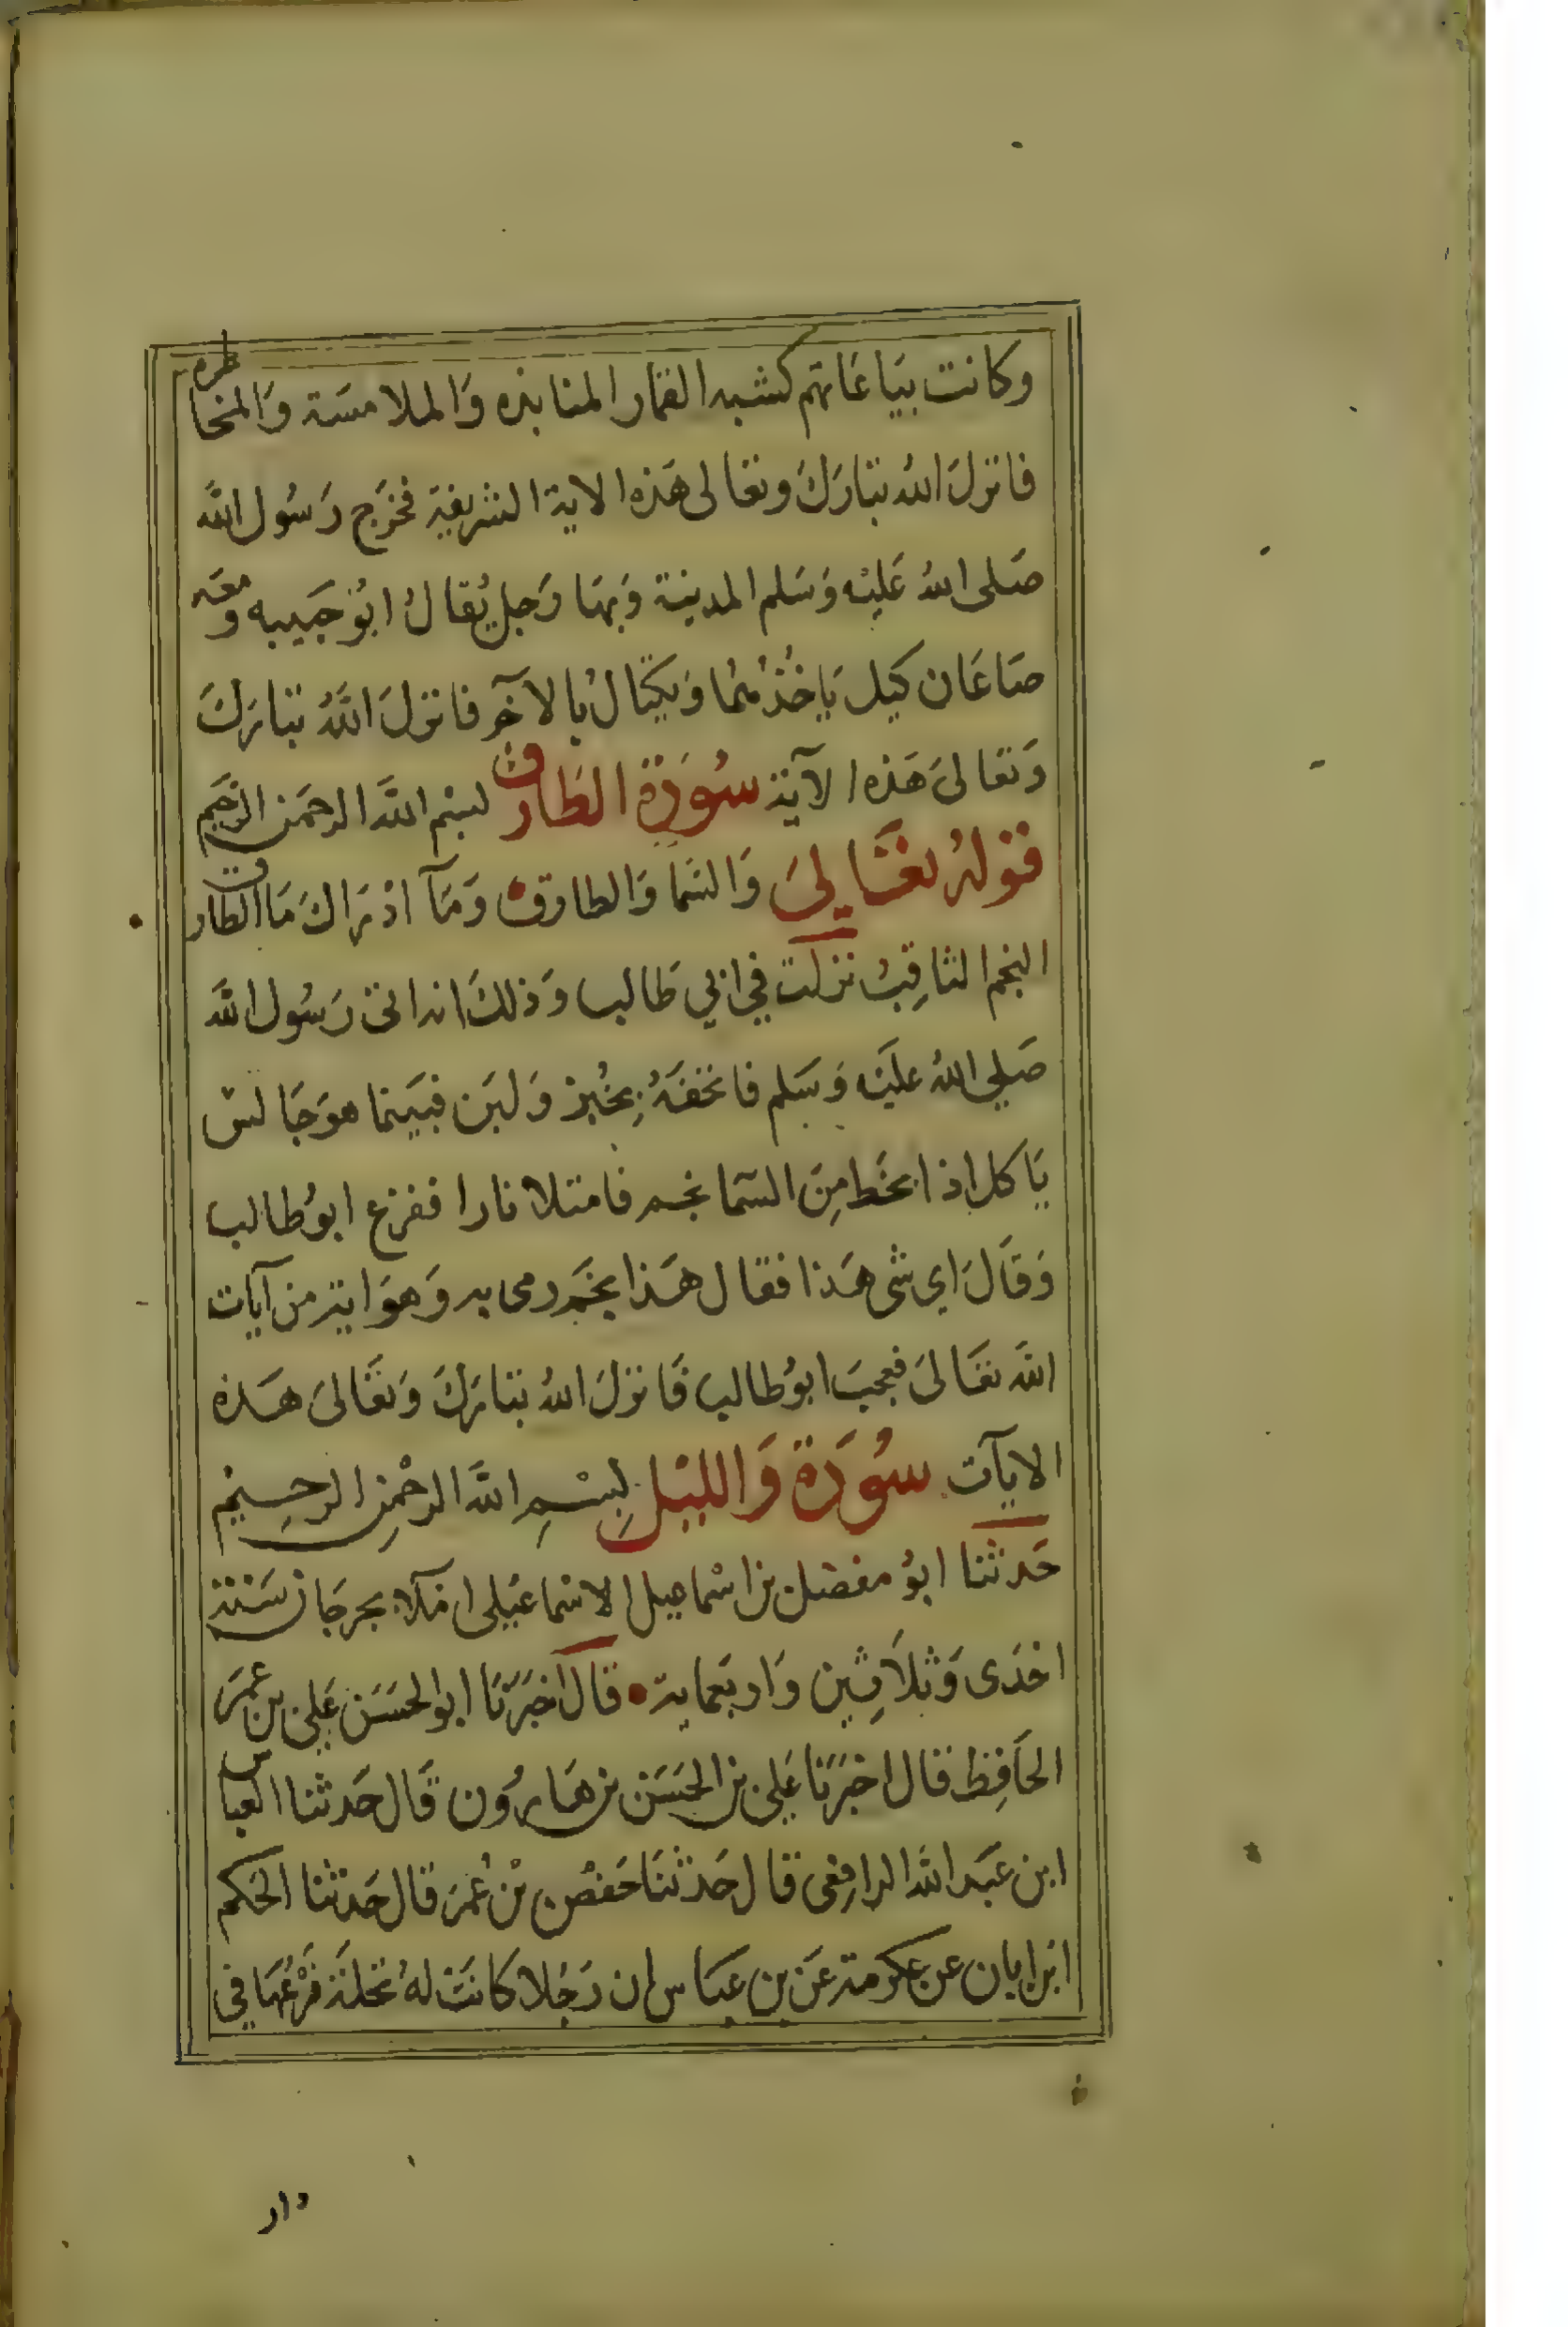 وكانت بياعاتهم كشبه القمار المنابذه وَالملامسَة وَالمخاطره
فانزلَ اللهُ تبَارَكَ وتعَالى هَذه الاية الشريفية فخرَج رَسُول اللَّه
صَلى اللهُ عَليْه وَسَلم المدينة وَبهَا رَجل يُقالُ ابُو جَهيبه ومعَه
صَاعَان كيل يَاخُذ منهُما وَيكتالُ بالاآخر فانزلَ اللَّهُ تبَارَكَ
وَتعَالىَ هَذه الآية سُورَة الطَارق بسْم اللَّه الرحمَن الرَّحيم
قولهُ تعَالىَ وَالسَما وَالطارق وَمَآ ادْرَاكَ مَا الطارق
النجم الثاقِبُ نزلت في ابي طَالب وَذلكَ انه اتى رَسُول اللَّه
صَلي اللهُ عليَه وَسَلم فاتحفَهُ بخُبز وَلبَن فبَينما هوَ جَالسْ
يَاكل اذ انحَط مِنَ السَما نجم فامتلا نارا ففزع ابوُ طالب
وَقالَ اي شي هَذا فقال هَذا نجَم رمى به وَهوَ اية من آيات
اللَّه تعَالىَ فعجبَ ابوُ طالب فَانزلَ اللهُ تبَارَكَ وَتعَالىَ هَذه
الايآت سُورَة وَالليْل بِسْمِ اللَّه الرحْمنِ الرحِيْم
حَدثنا ابوُ مفضل بن اسْماعيل الاسْماعيْلى املآ بجرجَان سَنَة
احْدَى وَثلاَثِين وَاربَعماية قالَ اخبَرَنَا ابو الحسَن عَلِي بن عمرَ
الحَافِظ قال اخبَرَنَا عَلِي بن الحسَن بن هَارُون قَال حَدثنا العباس
ابن عَبَد اللَّه الرافِعى قال حَدثنَا حَفصْ بْن عُمرَ قال حَدثنا الحَكم
ابْن ابان عن عكرمة عَن بن عبَاس ان رَجُلا كانَتْ لهُ نخلَة فَرْعُهَا في
دار